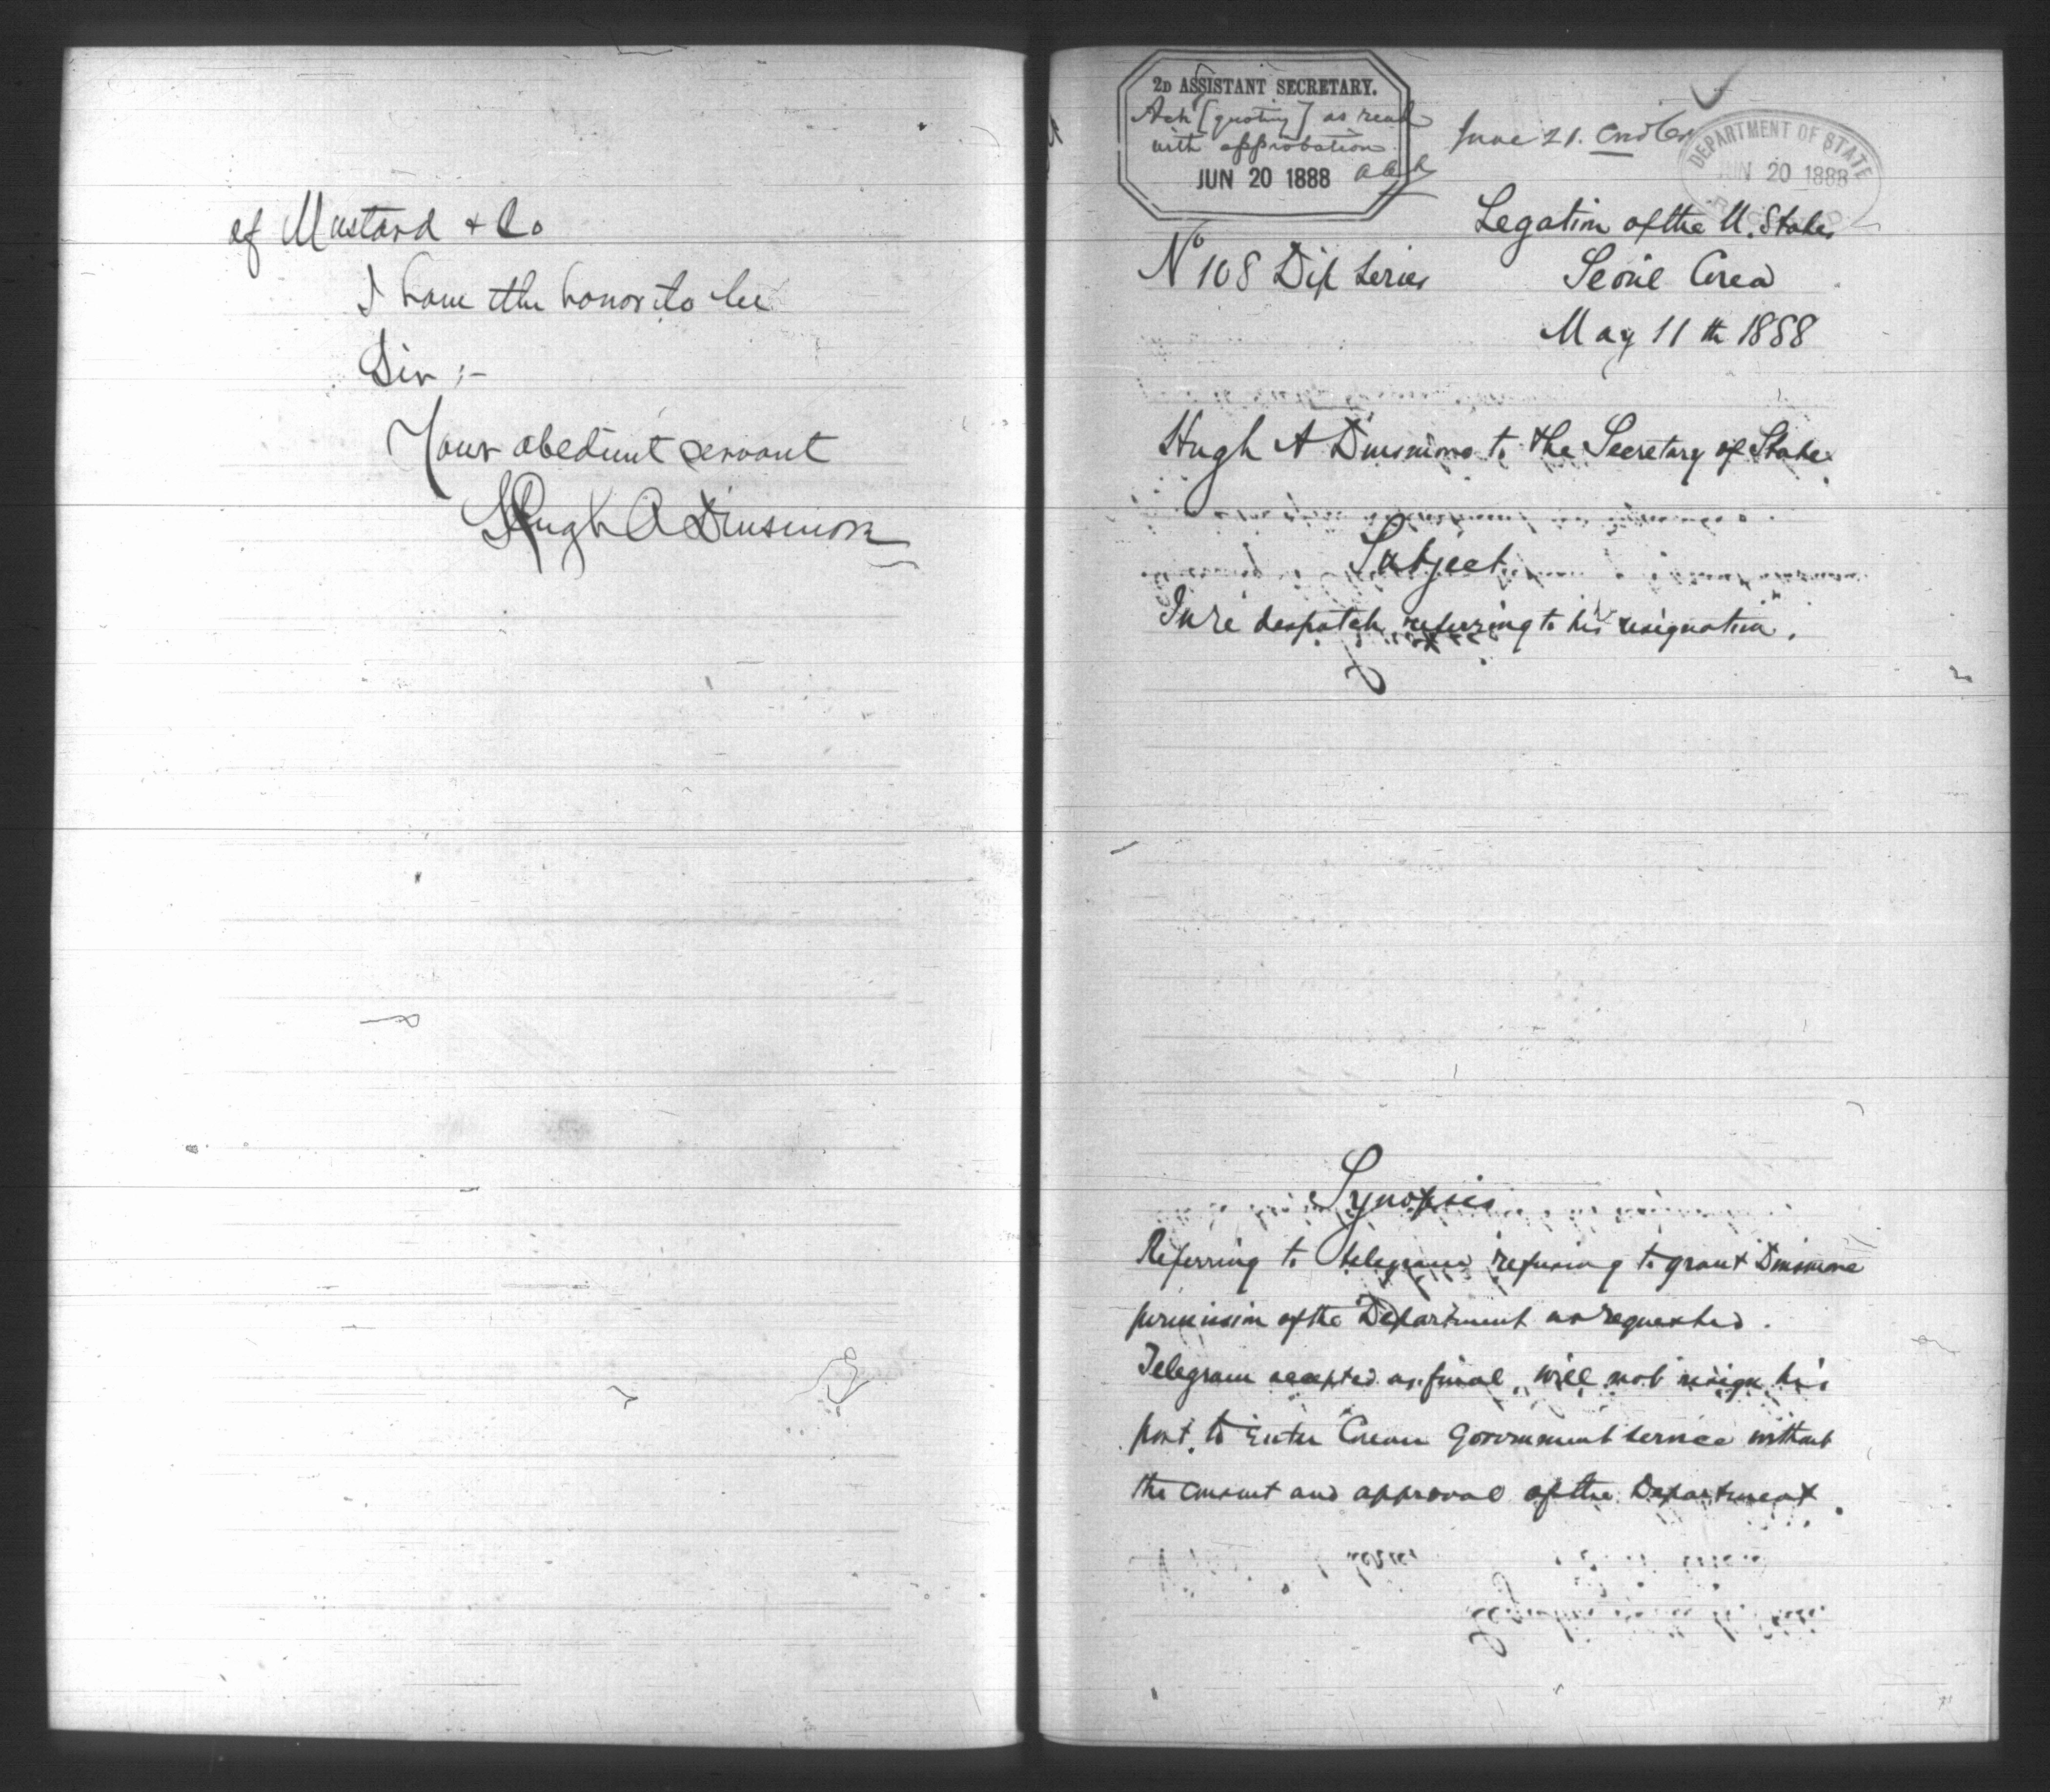 of Mustard & Co
I have the honor to be
Sir :-
Your obedient servant
Hugh A Dinsmore
2D ASSISTANT SECRETARY.
Ack [quoting] as read
with approbation
JUN 20 1888 AAA
June 21.
DEPARTMENT OF STATE
JUN 20 1888
RECEIVED
Legation of the U. States
No 108 Dip Series Seoul Corea
May 11th 1888
Hugh A Dinsmore to the Secretary of State
Subject
In re despatch referring to his resignation.
Synopsis
Referring to telegram refusing to grant Dinsmore
permission of the Department as requested.
Telegram accepted as final, will not resign his
post to enter Corean Government service without
the consent and approval of the Department.